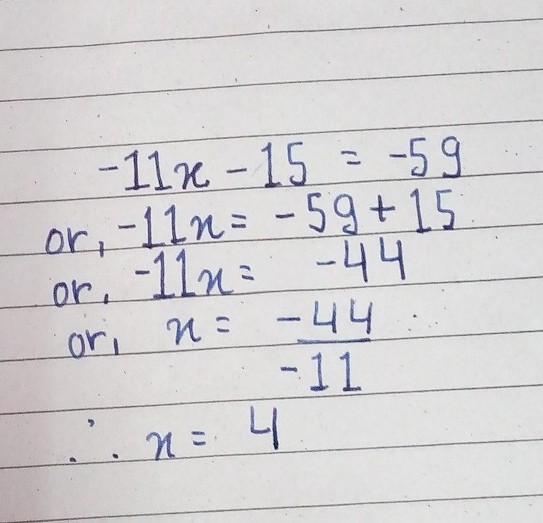 -11x - 15 = -59
or, -11x = -59 + 15
or, -11x = -44
or, x = -44
-11
∴ x = 4